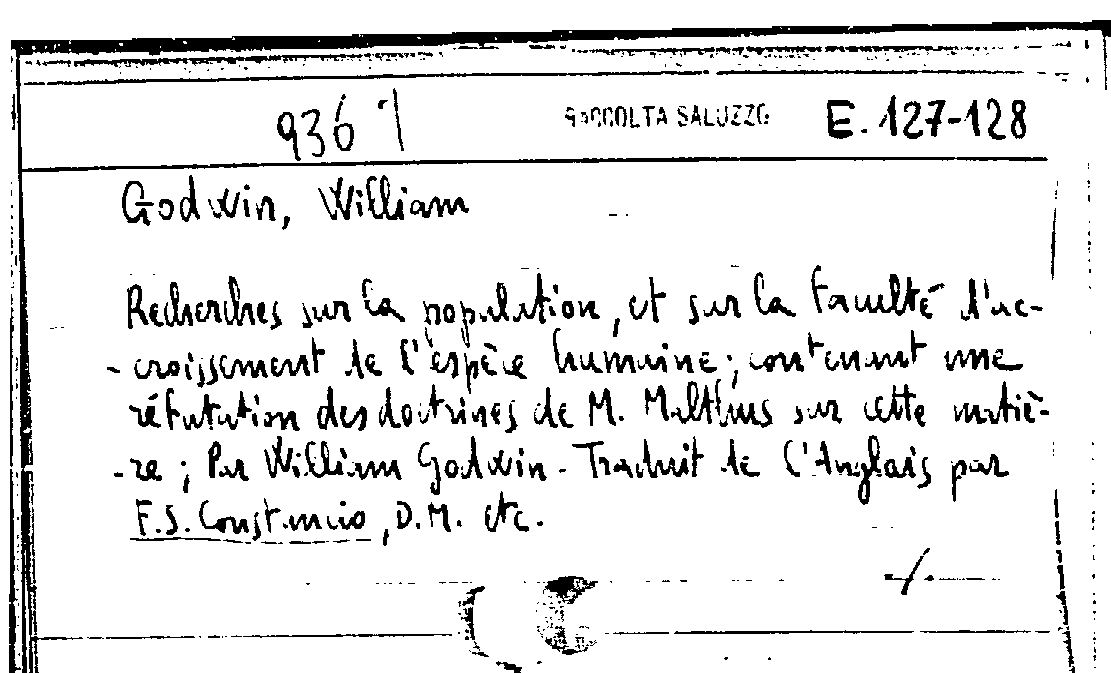 9367 RACCOLTA SALUZZO E. 127-128
Godwin, William
Recherches sur la population, et sur la faculté d'ac-
-croissement de l'espèce humaine; contenant une
réfutation des doctrines de M. Malthus sur cette matiè-
-re; Par William Godwin - Traduit de l'Anglais par
F.S. Constancio, D.M. etc.
./.